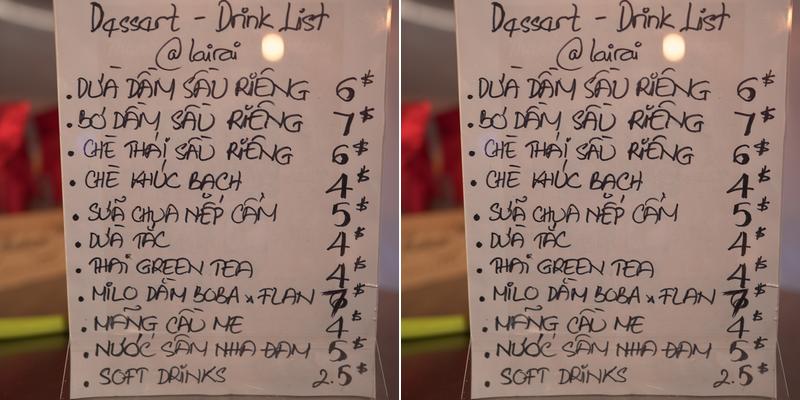 Dessart - Drink List
@lairai
. DỪA DẦM SẦU RIÊNG 6$
. BƠ DẦM SẦU RIÊNG 7$
. CHÈ THÁI SẦU RIÊNG 6$
. CHÈ KHÚC BẠCH 4$
. SỮA CHUA NẾP CẨM 5$
. DỪA TẮC 4$
. THAI GREEN TEA 4$
. MILO DẦM BOBA x FLAN 7$
. MÃNG CẦU ME 4$
. NƯỚC SÂM NHA ĐAM 5$
. SOFT DRINKS 2.5$
Dessart - Drink List
@lairai
. DỪA DẦM SẦU RIÊNG 6$
. BƠ DẦM SẦU RIÊNG 7$
. CHÈ THÁI SẦU RIÊNG 6$
. CHÈ KHÚC BẠCH 4$
. SỮA CHUA NẾP CẨM 5$
. DỪA TẮC 4$
. THAI GREEN TEA 4$
. MILO DẦM BOBA x FLAN 7$
. MÃNG CẦU ME 4$
. NƯỚC SÂM NHA ĐAM 5$
. SOFT DRINKS 2.5$